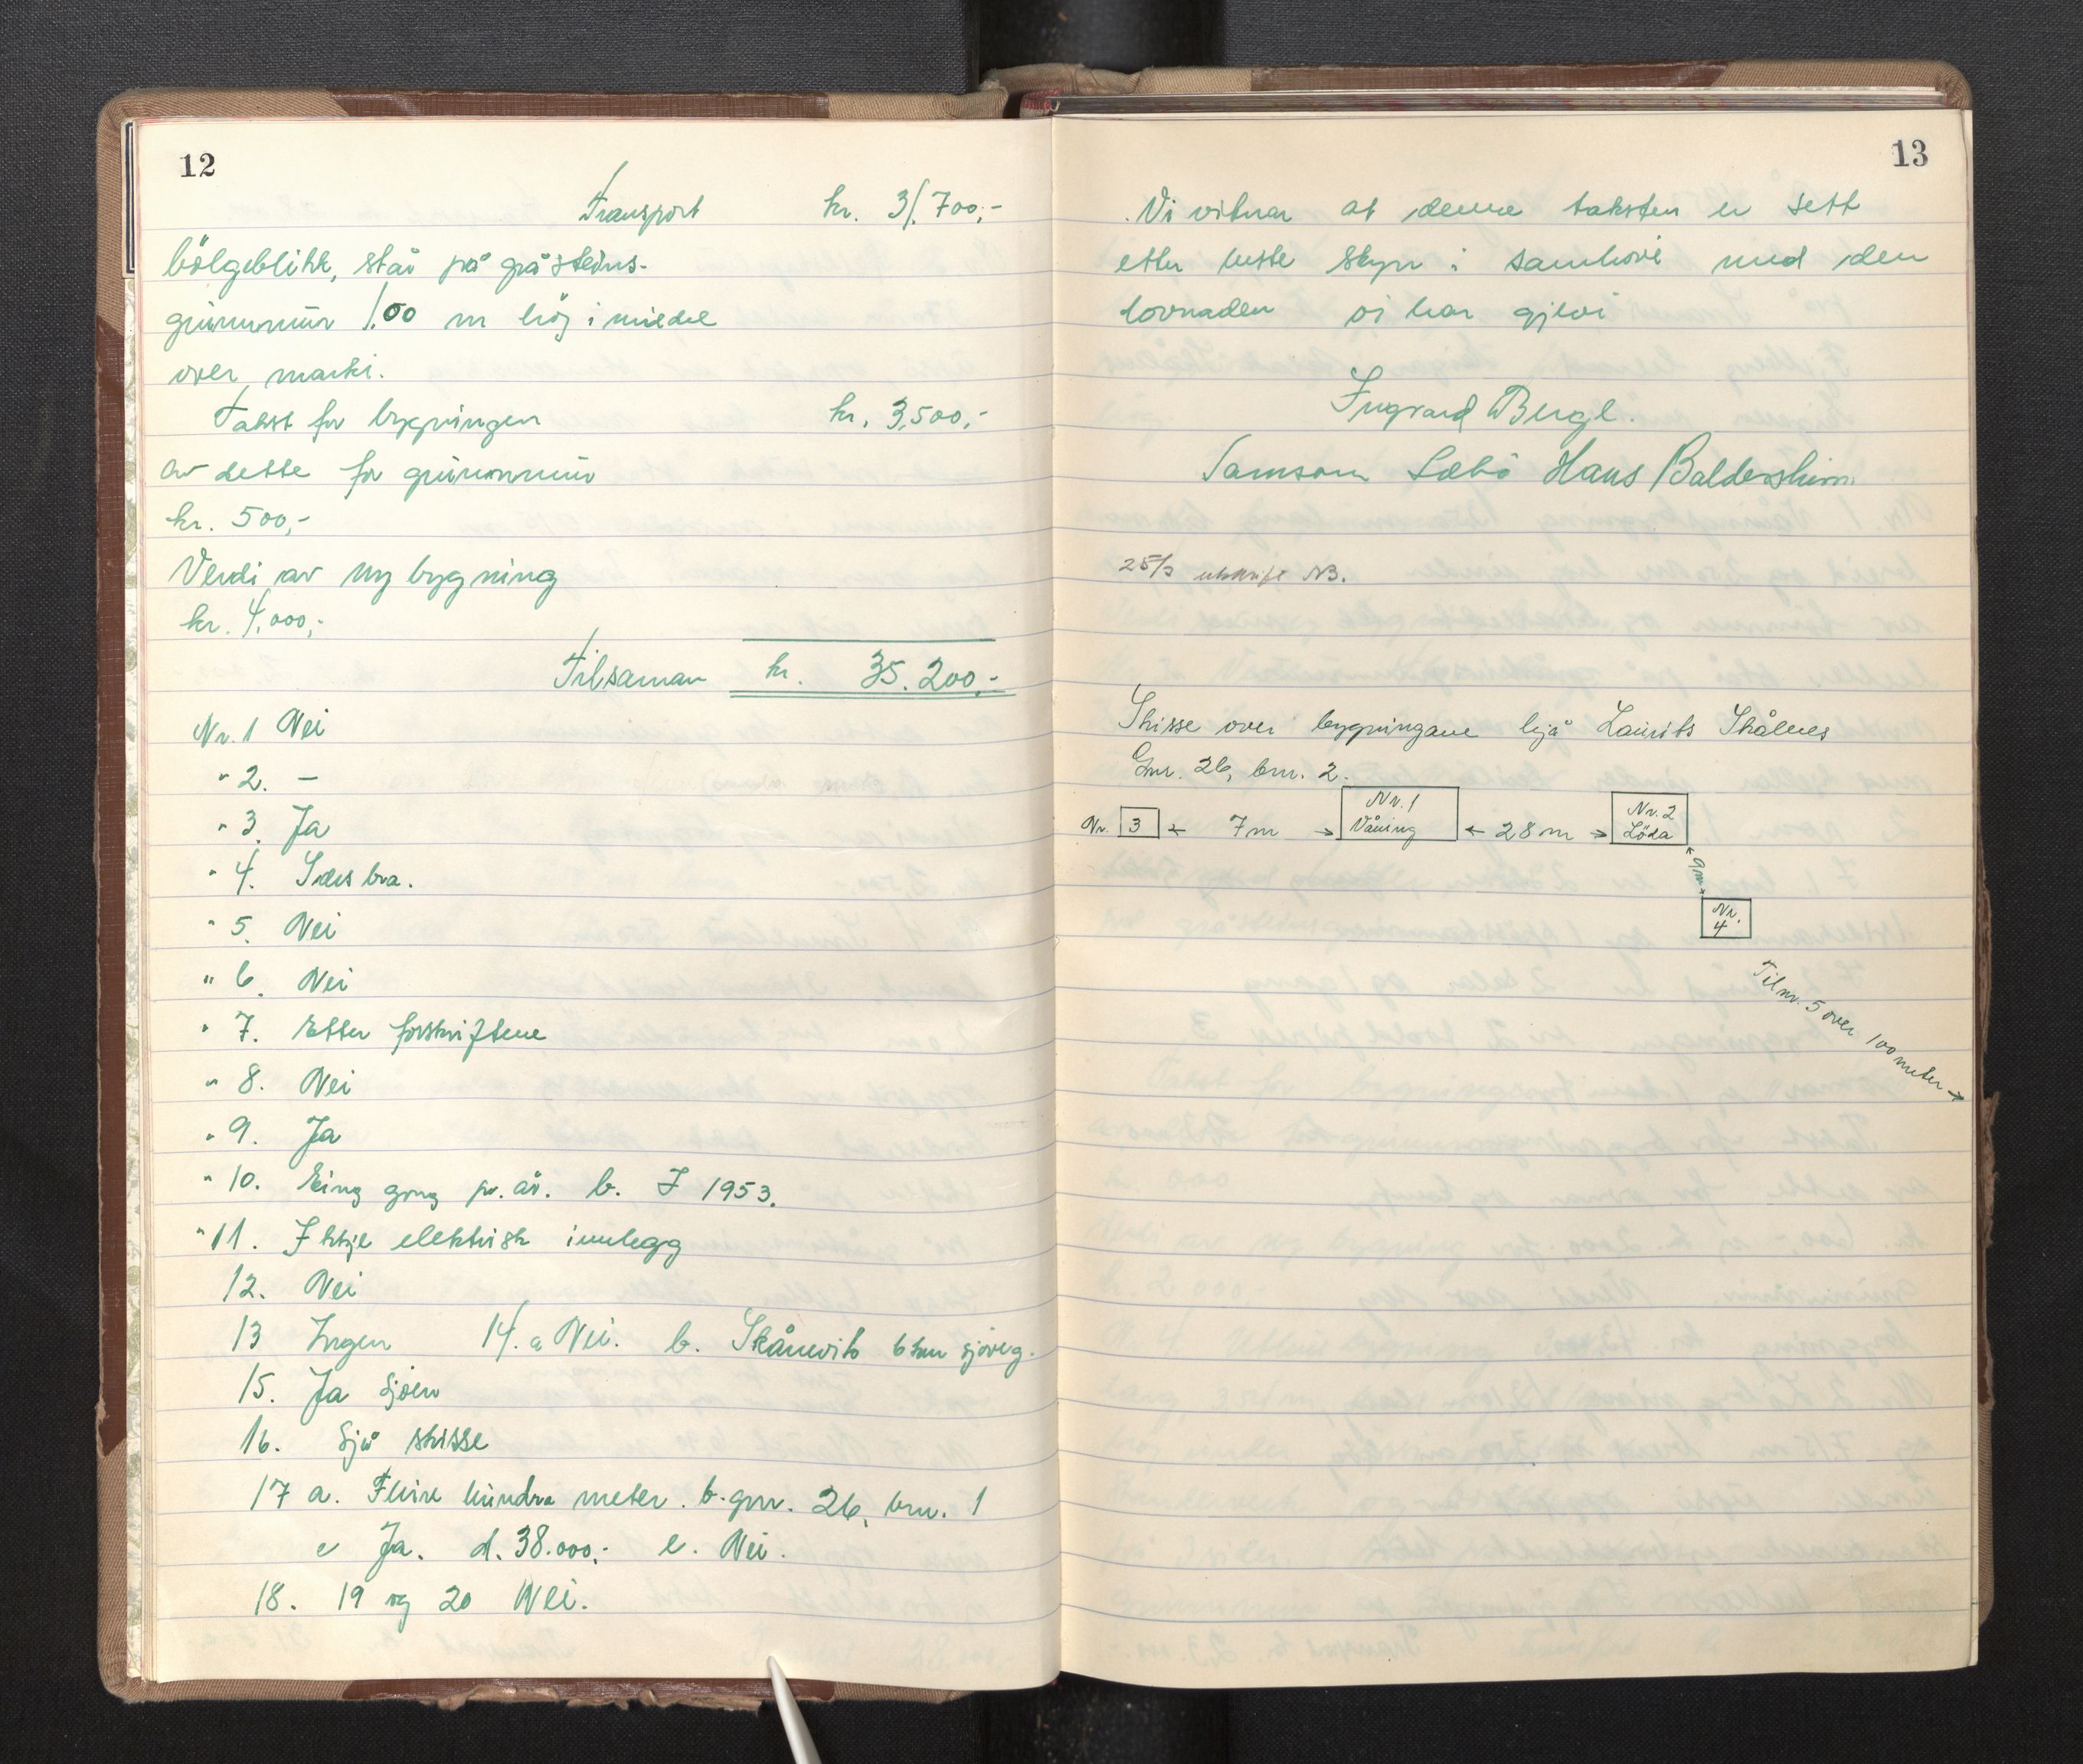 12
Transport kr. 31.700,-
bölgeblikk, står på gråsteins-
grunnmur 1.00 m høg i middel
over marki.
Takst for bygningen kr. 3,500,-
av dette for grunnmur
kr. 500,-
Verdi av ny bygning
kr. 4.000,-
Tilsaman kr. 35.200,-
Nr. 1 Nei
" 2. —
" 3. Ja
" 4. Sers bra.
" 5. Nei
" 6. Nei
" 7. Etter forskriftene
" 8. Nei
" 9. Ja
" 10. Eing gong pr. år. b. I 1953.
" 11. Ikkje elektrisk innlegg
12. Nei
13 Ingen 14. a Nei. b. Skånevik 6 km sjöveg.
15. Ja sjöen
16. Sjå skisse
17 a. Fleire hundra meter. b. gnr. 26, bnr. 1
c Ja. d. 38.000,- e. Nei.
18. 19 og 20 Nei.
13
Vi vitnar at denne taksten er sett
etter beste skyn i samhøve med den
lovnaden vi har gjevi
Ingvard Berge.
Samson Sæbö Hans Baldersheim
25/3 utskrift NB.
Skisse over bygningane hjå Laurits Skålnes
Gnr. 26, bnr. 2.
Nr. 3 ← 7 m → Nr. 1 Våning ← 28 m → Nr. 2 Löda
9 m
Nr. 4
Til nr. 5 over 100 meter →